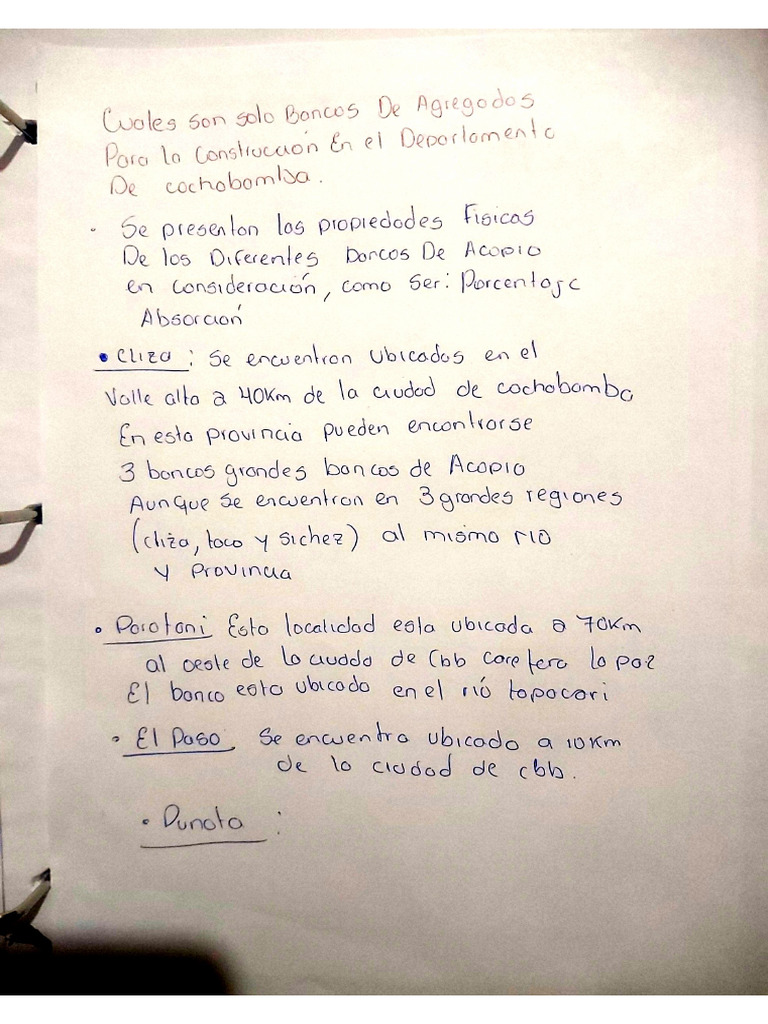 Cuales son solo Bancos De Agregados
Para la Construcción En el Departamento
De cochabamba.
· Se presentan las propiedades Fisicas
De los Diferentes bancos De Acopio
en consideración, como ser: Porcentaje
Absorción
• Cliza : Se encuentran ubicados en el
Valle alto a 40Km de la ciudad de cochabamba
En esta provincia pueden encontrarse
3 bancos grandes bancos de Acopio
Aunque se encuentran en 3 grandes regiones
(cliza, toco y sichez) al mismo rio
y provincia
• Parotani Esta localidad esta ubicada a 70Km
al oeste de la ciudad de Cbb caretera la paz
El banco esta ubicado en el rió tapacari
• El Paso Se encuentra ubicado a 10Km
de la ciudad de cbb.
• Punata :